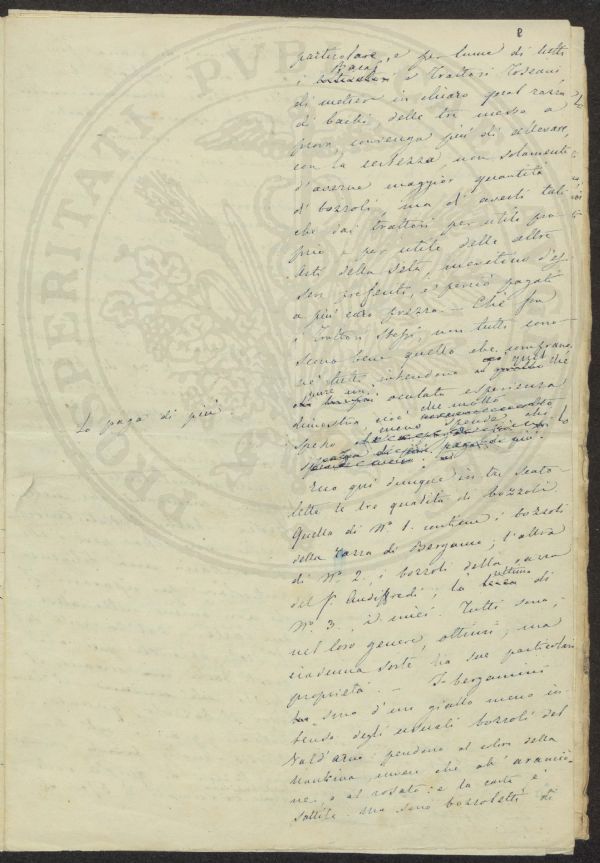 8
particolare, e per lume di tutti
i Bacaj e Trattori Toscani
di mettere in chiaro qual razza
di bachi delle tre messe a
prova convenga più di allevare,
con la certezza, non solamente
d'averne maggior quantità
di bozzoli, ma d'averli tali
che dai trattori per utile pro-
prio e per utile delle altre
Arti della Seta, meritino d'es-
ser preferiti, e perciò pagati
a più caro prezzo. — Chè fra
i Trattori stessi, non tutti cono-
scono bene quello che comprano,
nè tutti intendono quel che
pure un' oculata esperienza
dimostra, cioè che molto
spesso meno spende chi
lo paga di più.
Lo paga di più.
Ecco qui dunque in tre scato-
lette le tre qualità di bozzoli.
Quella di N.° 1. contiene i bozzoli
della razza di Bergamo; l'altra
di N.° 2, i bozzoli della razza
del S. Audiffredi; la ultima di
N.° 3, i miei. Tutti sono,
nel loro genere, ottimi; ma
ciascuna sorte ha sue particolari
proprietà. — I bergamini
sono d'un giallo meno in-
tenso degli usuali bozzoli del
Vald'arno: pendono al color della
Nankina, invece che all'arancio-
ne, o al rosato: e la carta è
sottile. Ma sono bozzoletti di